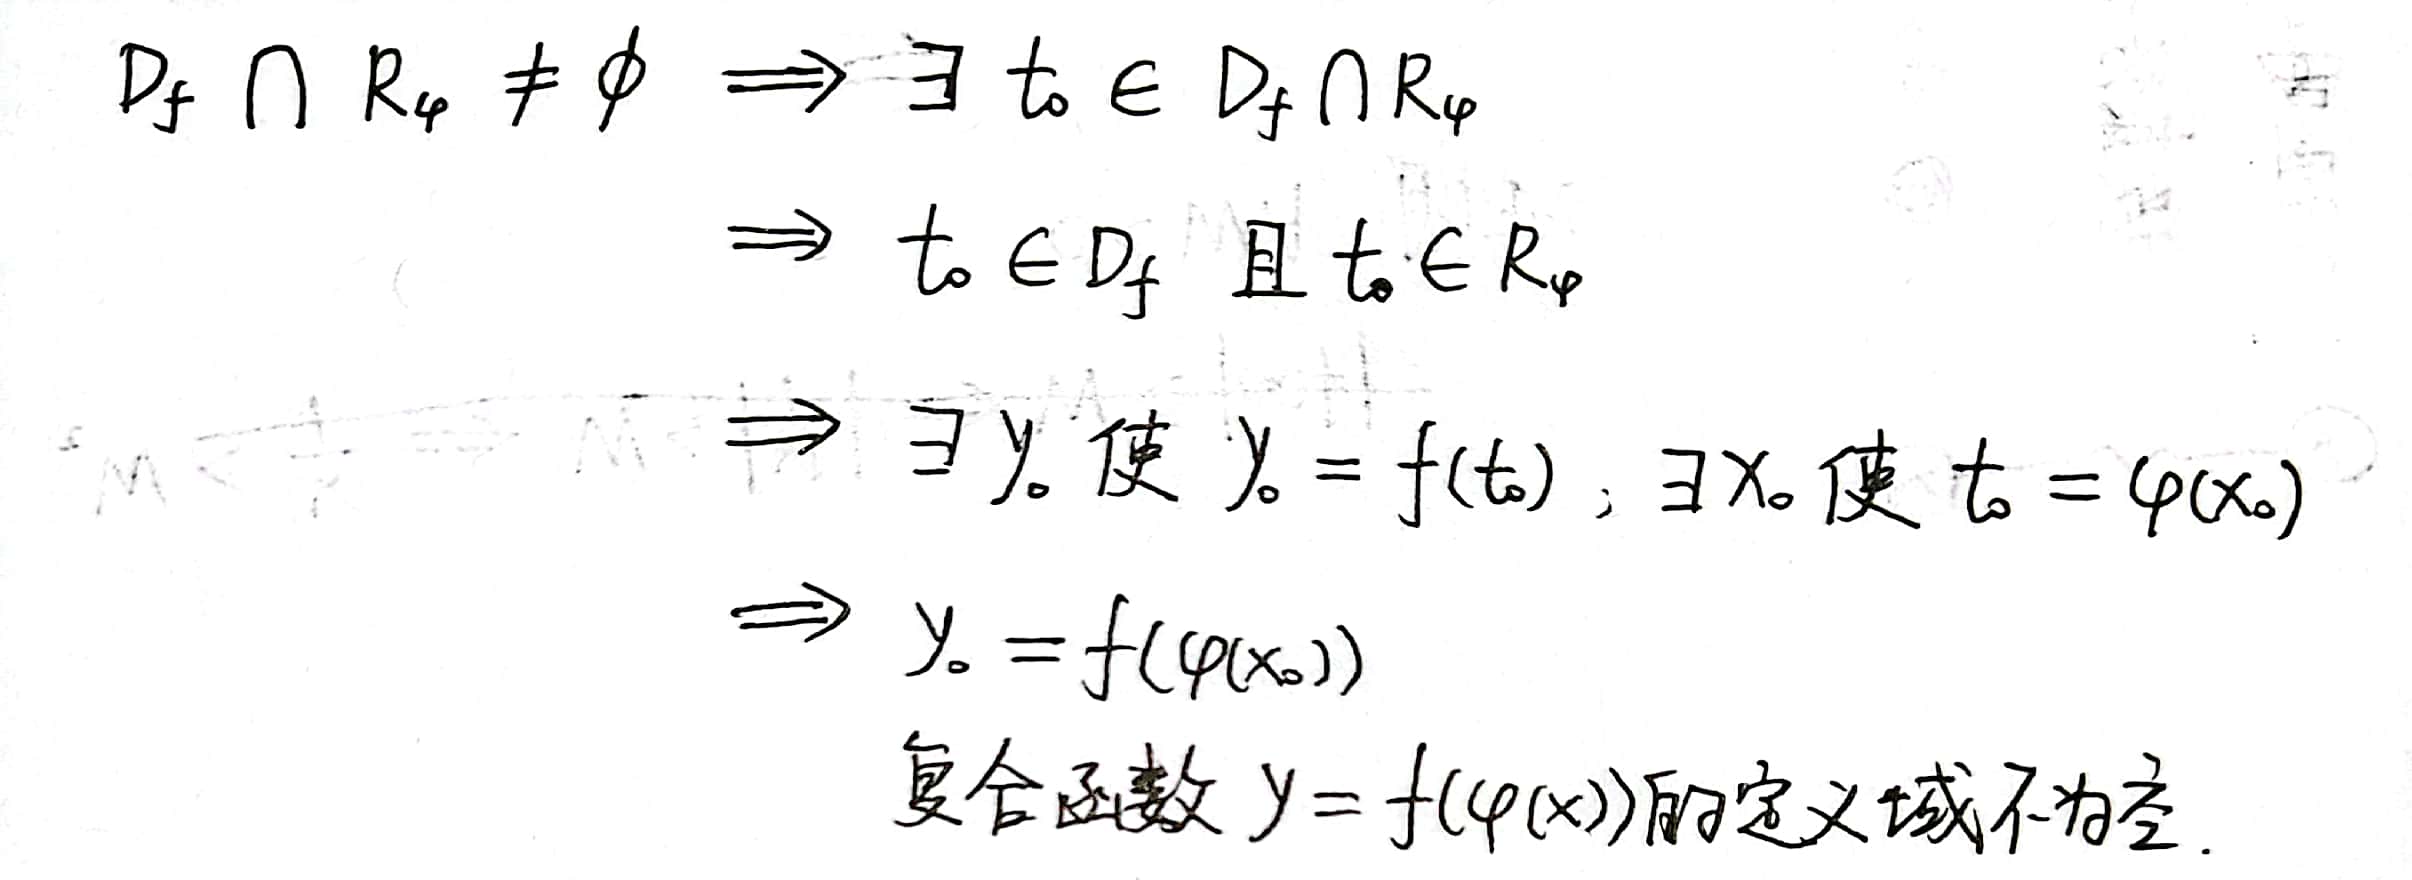 D_f ∩ R_φ ≠ ϕ ⟹ ∃ t₀ ∈ D_f ∩ R_φ
⟹ t₀ ∈ D_f 且 t₀ ∈ R_φ
⟹ ∃ y₀ 使 y₀ = f(t₀) ; ∃ x₀ 使 t₀ = φ(x₀)
⟹ y₀ = f(φ(x₀))
复合函数 y = f(φ(x))的定义域不为空.